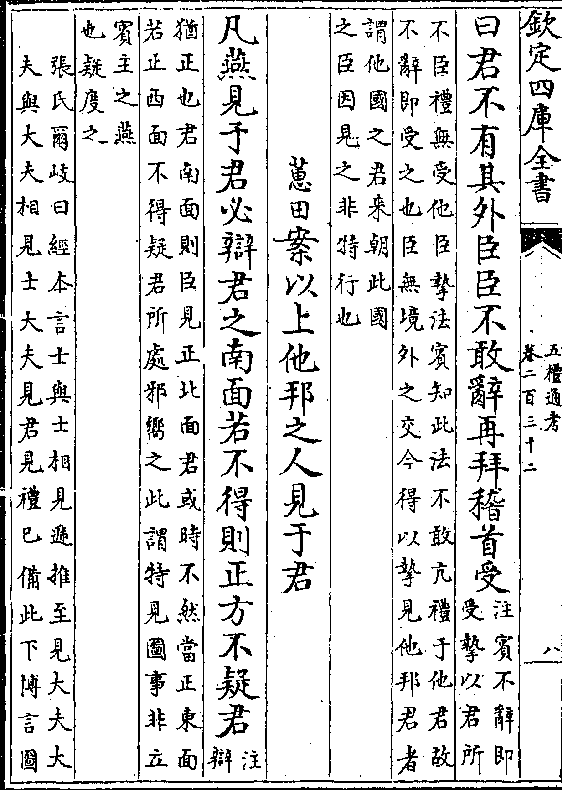 欽定四庫全書
五禮通考
卷二百三十二
八
曰君不有其外臣臣不敢辭再拜稽首受
注賓不辭即
受摯以君所
不臣禮無受他臣摯法賓知此法不敢亢禮于他君故
不辭即受之也臣無境外之交今得以摯見他邦君者
謂他國之君来朝此國
之臣因見之非特行也
蕙田案以上他邦之人見于君
凡燕見于君必辯君之南面若不得則正方不疑君
注
辯
猶正也君南面則臣見正北面君或時不然當正東面
若正西面不得疑君所處邪嚮之此謂特見圖事非立
賓主之燕
也疑度之
張氏爾岐曰經本言士與士相見遞推至見大夫大
夫與大夫相見士大夫見君見禮已備此下博言圖